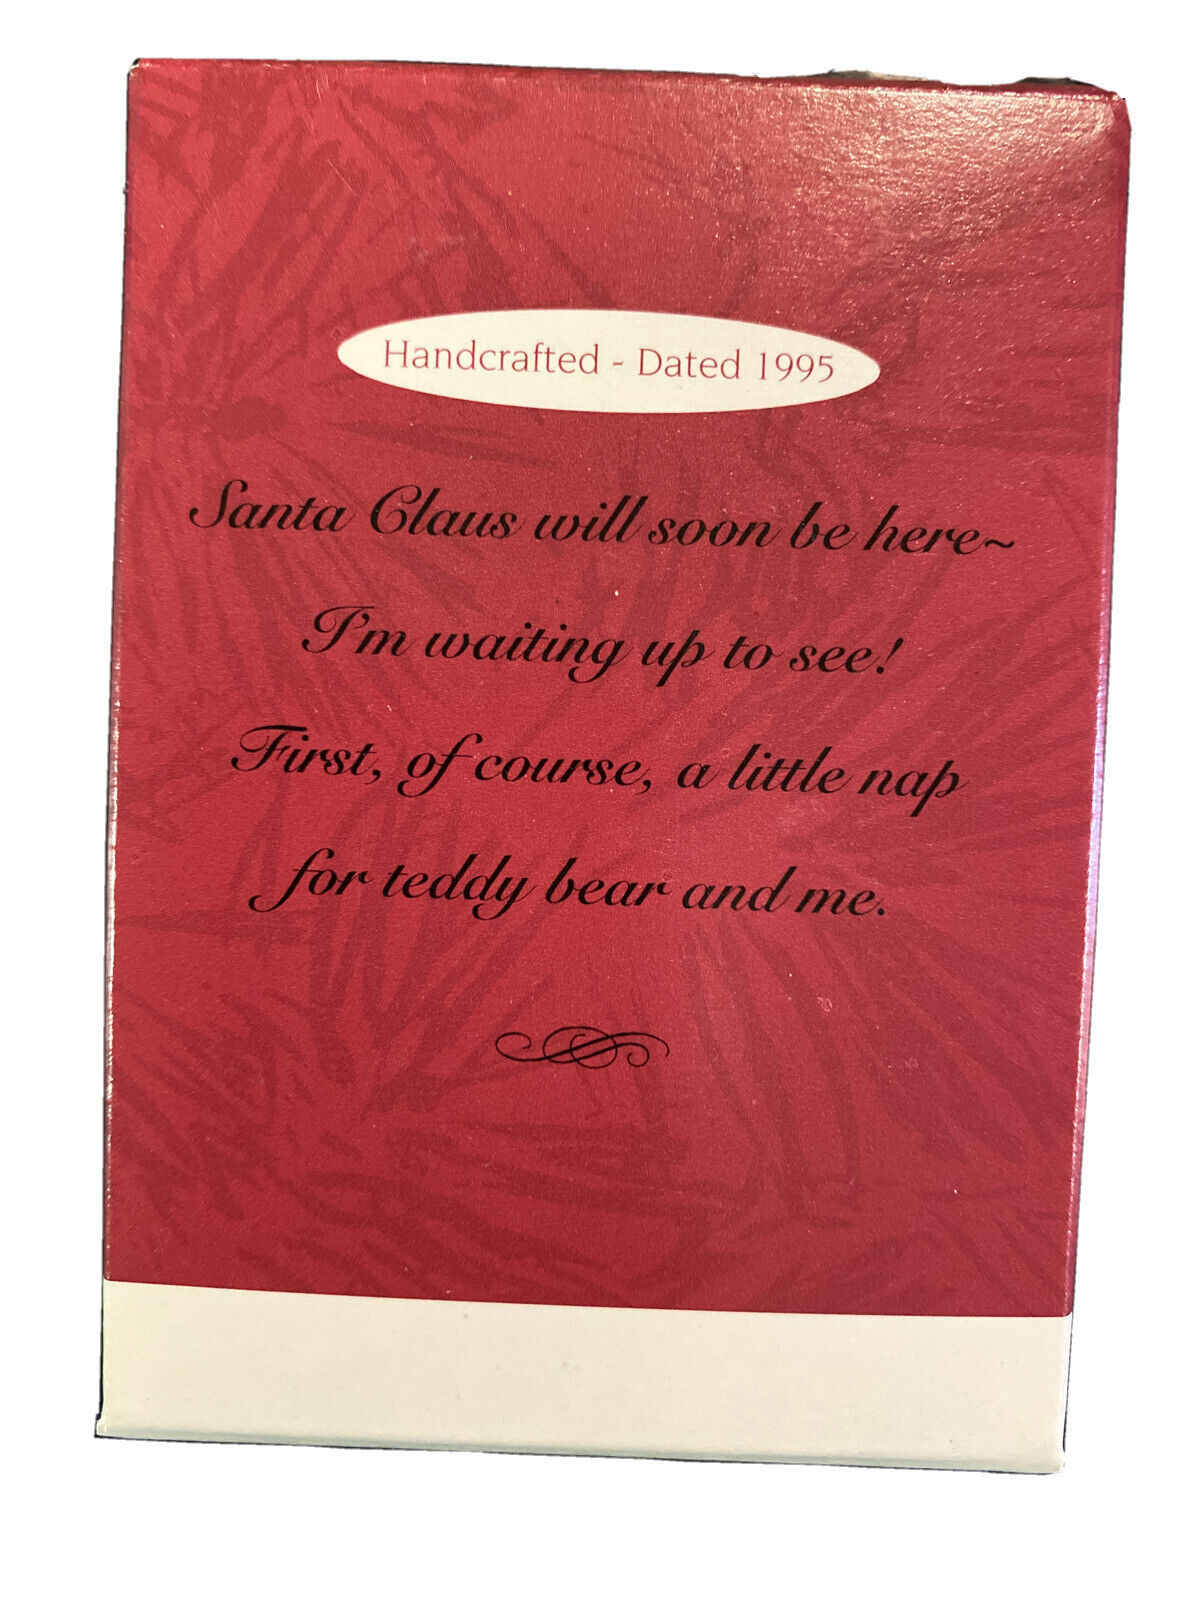 Handcrafted - Dated 1995
Santa Claus will soon be here~
I'm waiting up to see!
First, of course, a little nap
for teddy bear and me.